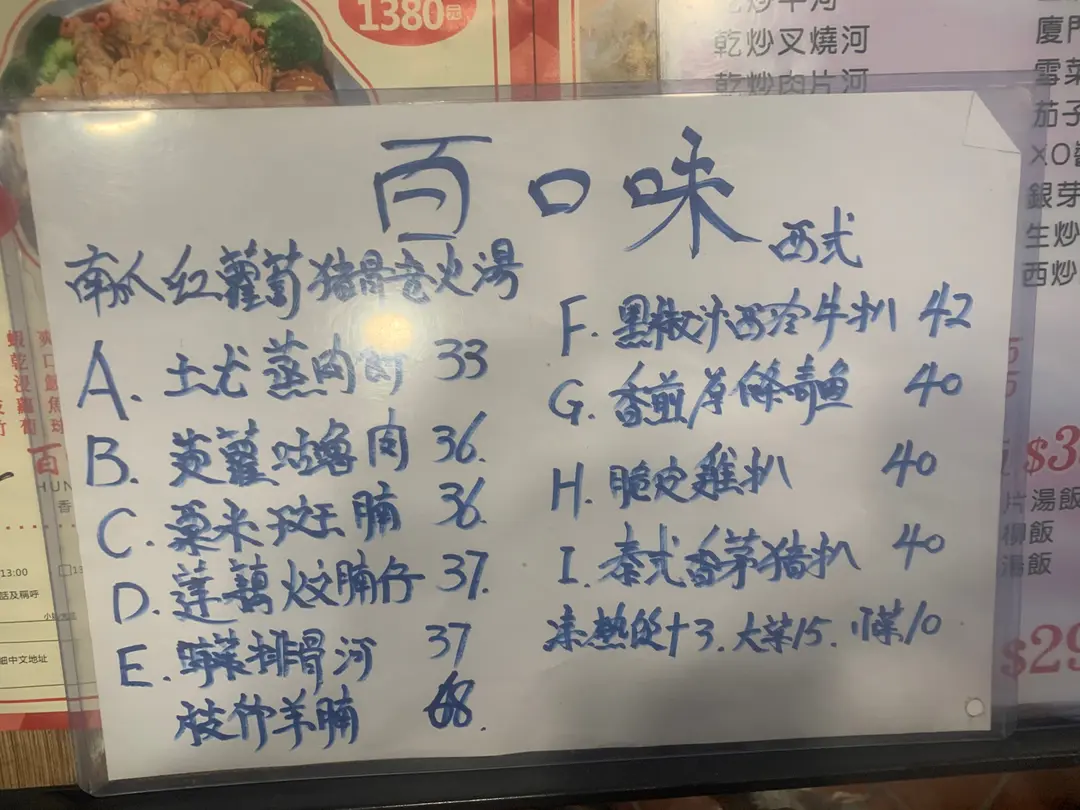 1380元
乾炒叉燒河
乾炒肉片河
廈門
雪菜
茄子
XO醬
銀芽
生炒
西炒
百口味
南爪紅蘿蔔猪骨老火湯
A. 土尤蒸肉餅 33
B. 菠蘿咕嚕肉 36.
C. 粟米斑腩 36.
D. 蓮藕炆腩仔 37.
E. 菜排骨河 37
枝竹羊腩 68.
西式
F. 黑椒汁西冷牛扒 42
G. 香煎原條青魚 40
H. 脆皮雞扒 40
I. 泰式香茅猪扒 40
凍熱飲+3. 大菜15. 菜10
蝦乾浸蘿蔔
爽口鯪魚球
13:00
話及稱呼
細中文地址
$3
片湯飯
柳飯
湯飯
$29